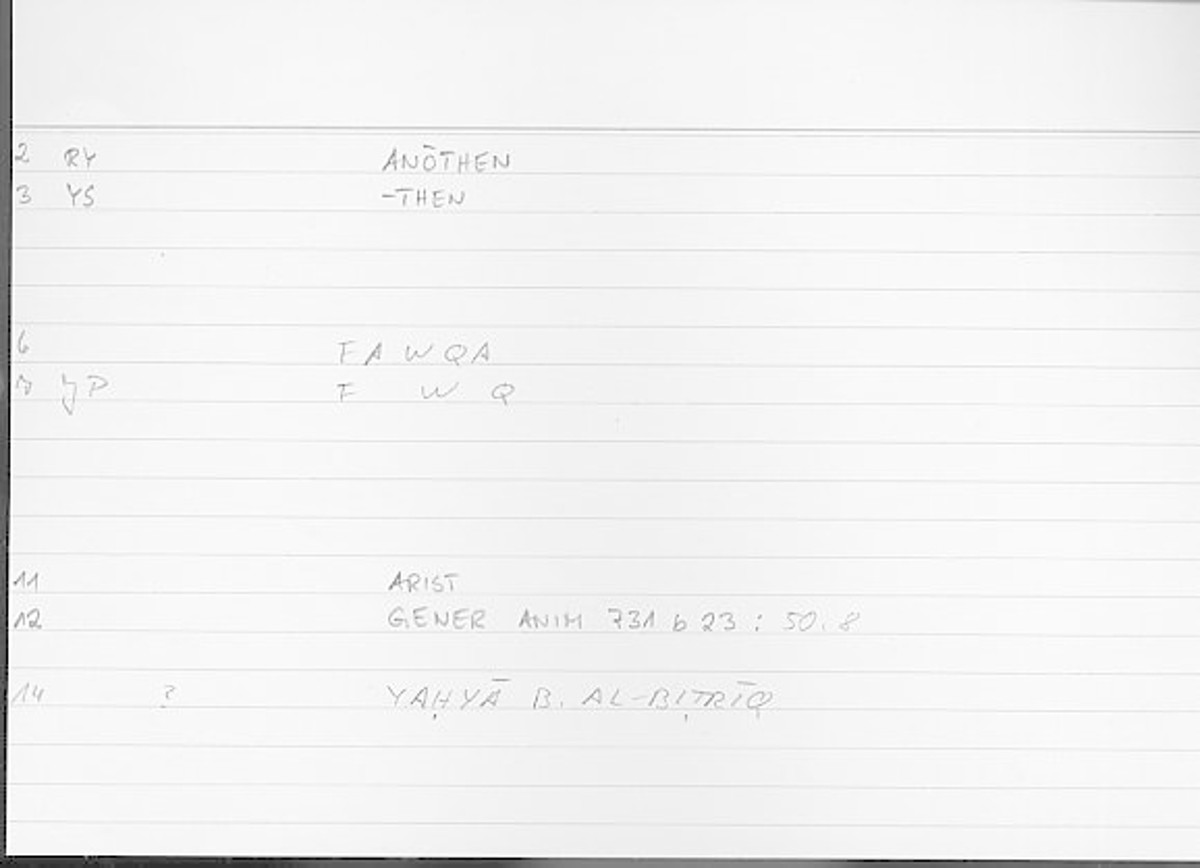 2 RY ANŌTHEN
3 YS -THEN
6 FAWQA
7 yP F W Q
11 ARIST
12 GENER ANIM 731 b 23 : 50.8
14 ? YAḤYĀ B. AL-BIṬRĪQ